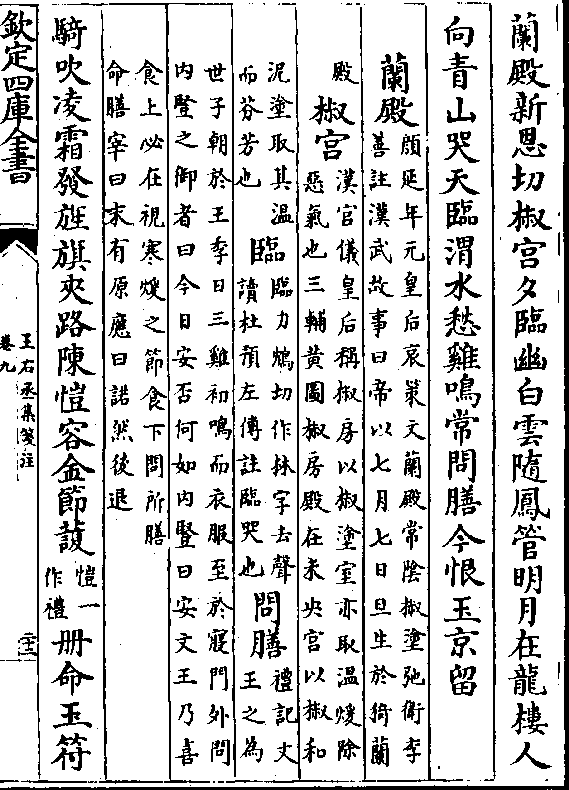 蘭殿新恩切椒宫夕臨幽白雲隨鳳管明月在龍樓人
向青山哭天臨渭水愁雞鳴常問膳今恨玉京留
蘭殿顔延年元皇后哀策文蘭殿常陰椒塗弛衛李
善註漢武故事曰帝以七月七日旦生於猗蘭
殿椒宫漢官儀皇后稱椒房以椒塗室亦取温煖除
惡氣也三輔黄圖椒房殿在未央宫以椒和
泥塗取其温
而芬芳也臨臨力鴆切作牀字去聲
讀杜預左傳註臨哭也問膳禮記文
王之為
世子朝於王季日三雞初鳴而衣服至於寢門外問
内豎之御者曰今日安否何如内豎曰安文王乃喜
食上必在視寒煖之節食下問所膳
命膳宰曰末有原應曰諾然後退
騎吹凌霜發旌旗夾路陳愷容金節護愷一
作禮册命玉符
欽定四庫全書
王右丞集箋注
卷九
二十三